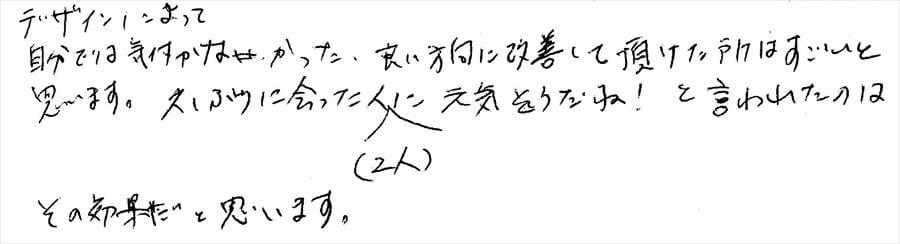 デザインによって
自分では気付かなかった、良い方向に改善して頂けた所はすごいと
思います。久しぶりに会った人に元気そうだね！と言われたのは
(2人)
その効果だと思います。